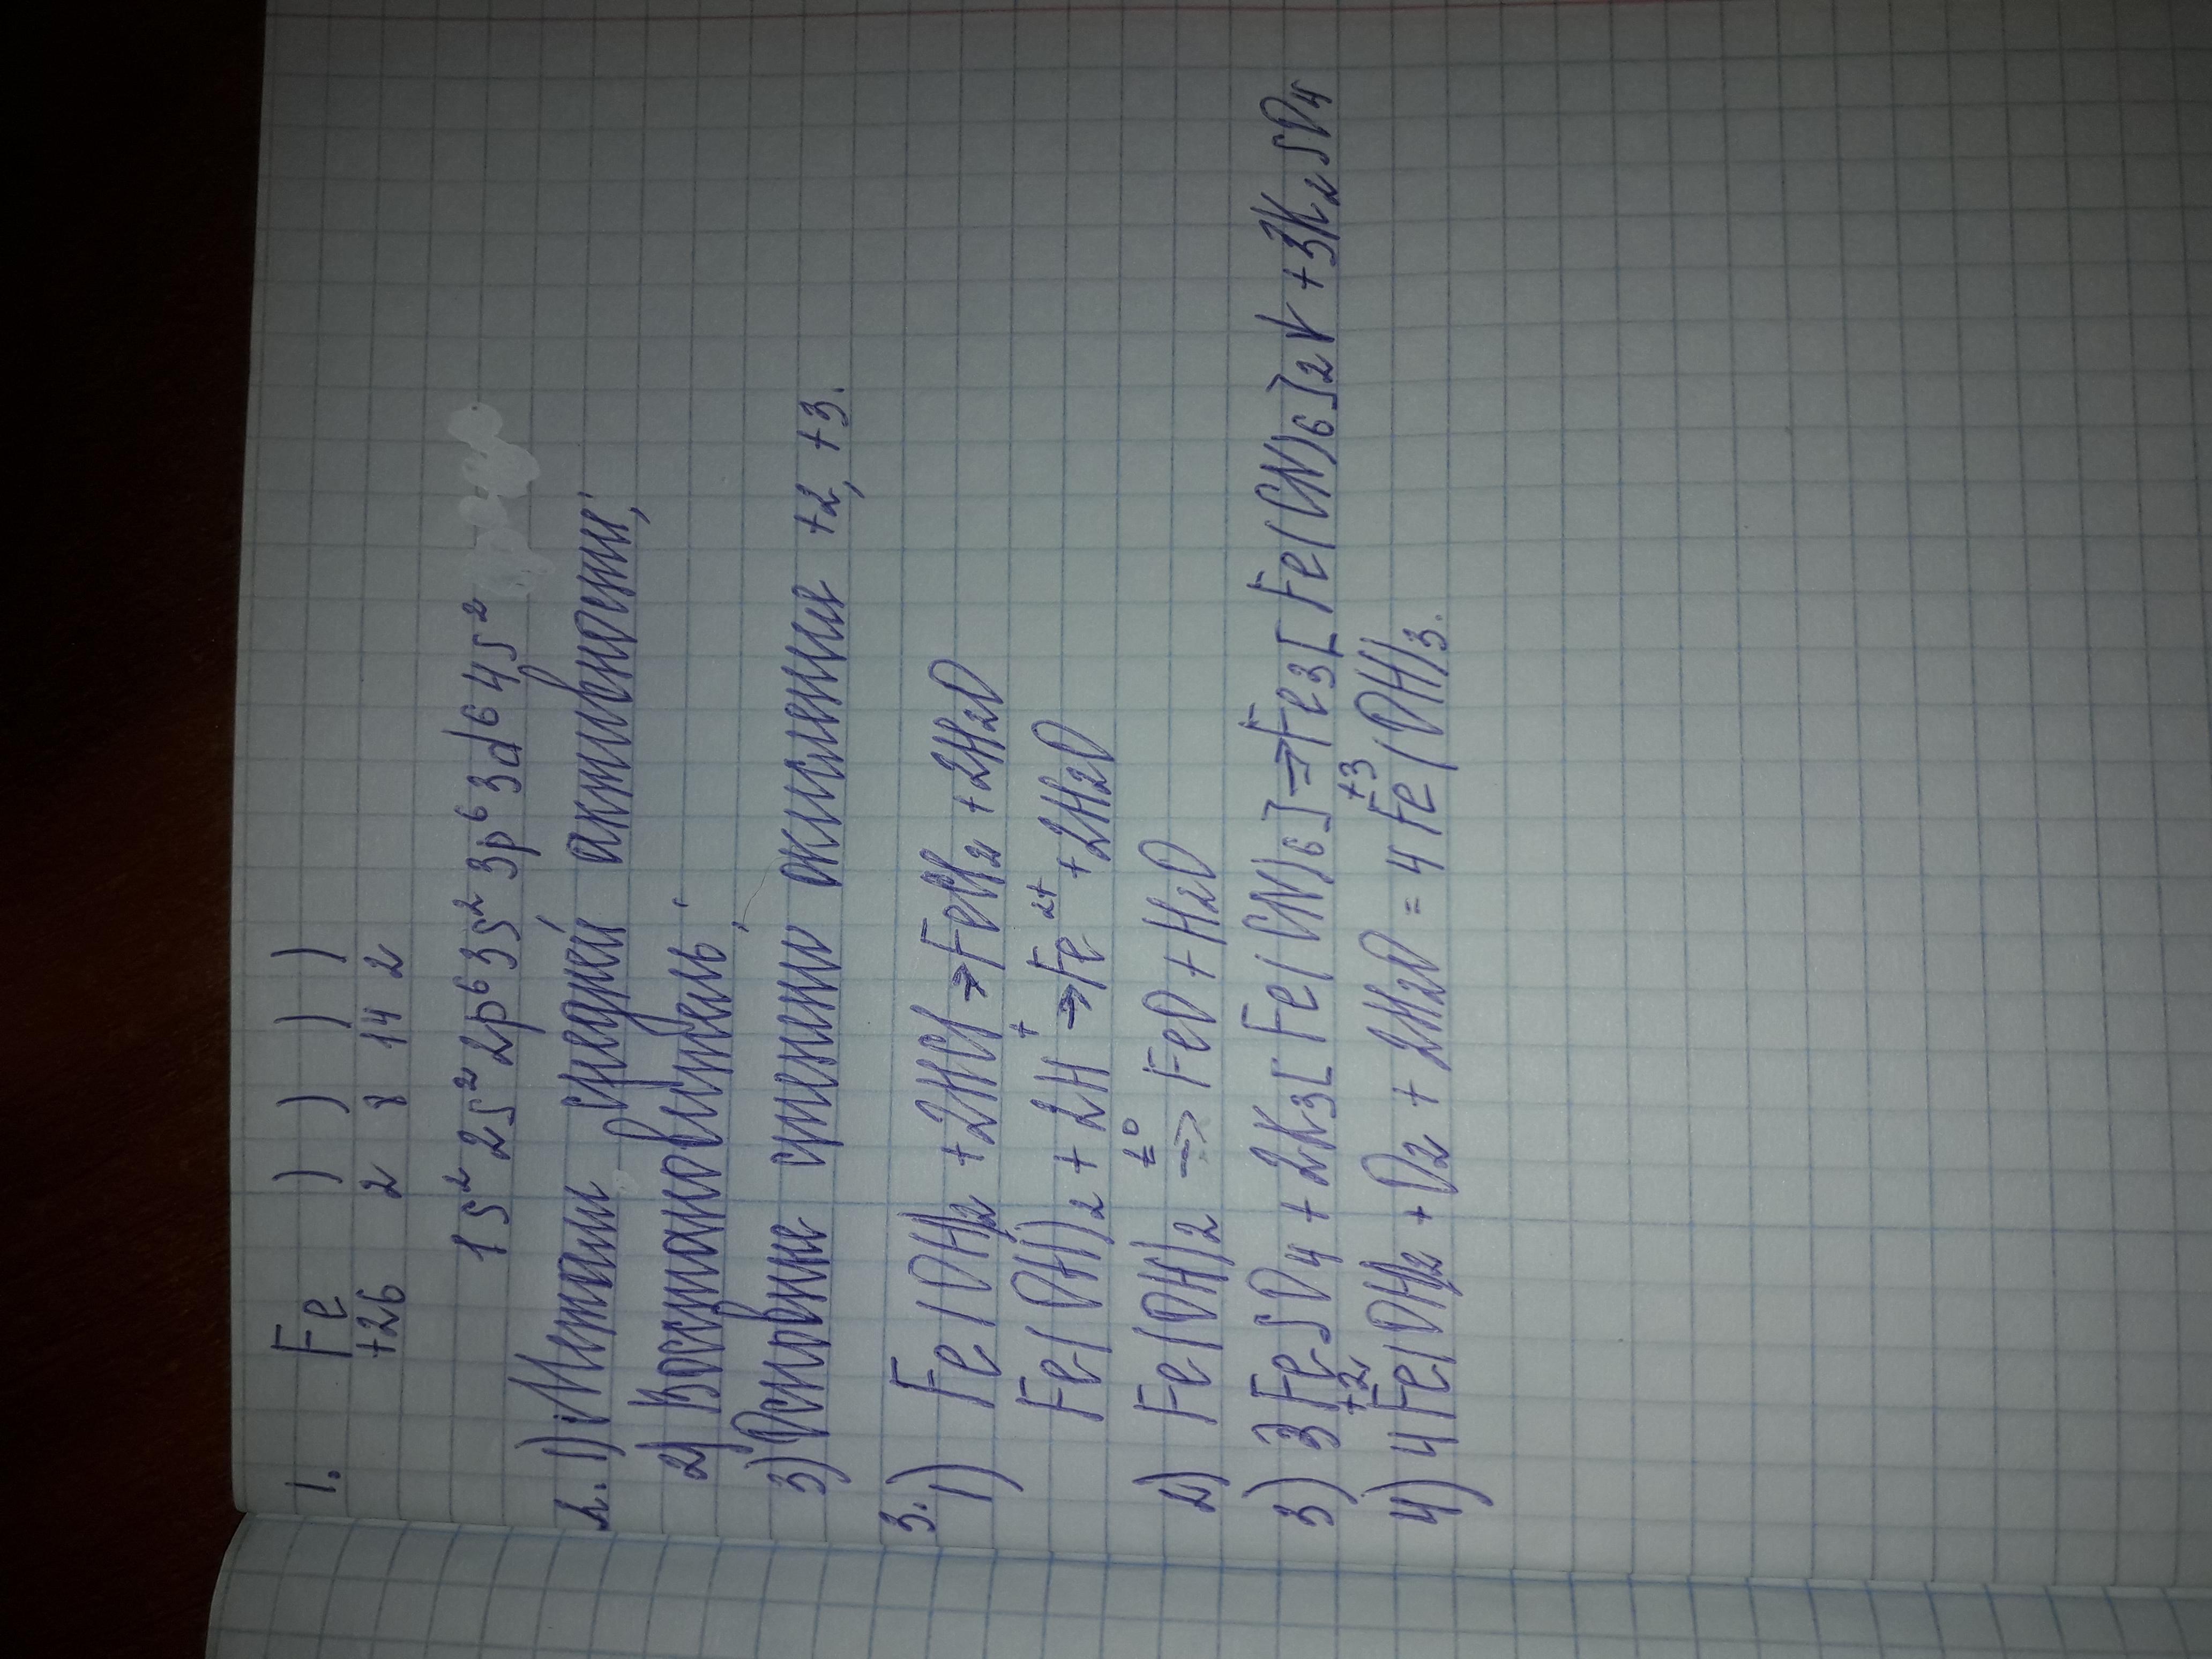 1. Fe ) ) ) )
+26 2 8 14 2
1s² 2s² 2p⁶ 3s² 3p⁶ 3d⁶ 4s²
2. 1) Металл средней активности;
2) Восстановитель;
3) Основные степени окисления +2, +3.
3.
1) Fe(OH)₂ + 2HCl → FeCl₂ + 2H₂O
Fe(OH)₂ + 2H⁺ → Fe²⁺ + 2H₂O
2) Fe(OH)₂ →^t° FeO + H₂O
3) 3FeSO₄ + 2K₃[Fe(CN)₆] → Fe₃[Fe(CN)₆]₂↓ + 3K₂SO₄
+2 +3
4) 4Fe(OH)₂ + O₂ + 2H₂O = 4Fe(OH)₃.